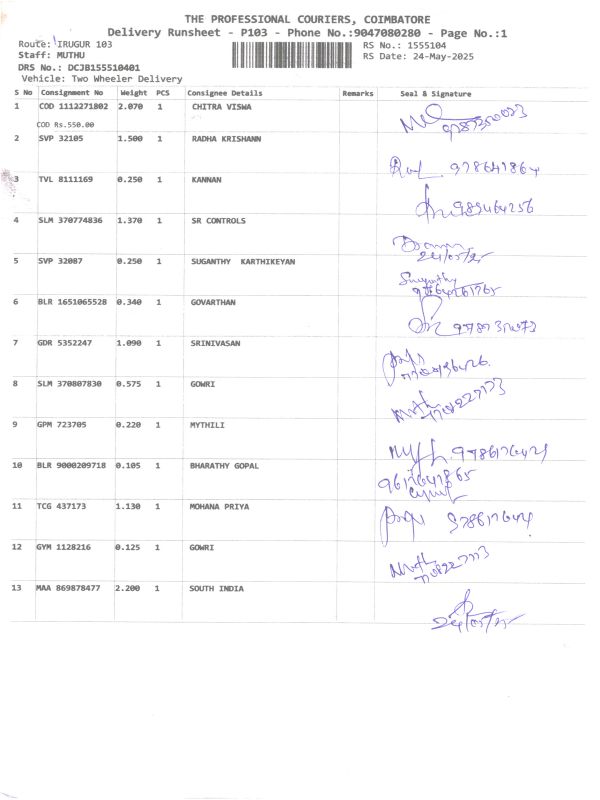 THE PROFESSIONAL COURIERS, COIMBATORE
Delivery Runsheet - P103 - Phone No.:9047080280 - Page No.:1
Route: IRUGUR 103
RS No.: 1555104
Staff: MUTHU
RS Date: 24-May-2025
DRS No.: DCJB155510401
Vehicle: Two Wheeler Delivery
S No Consignment No Weight PCS Consignee Details Remarks Seal & Signature
1 COD 1112271802 2.070 1 CHITRA VISWA
COD Rs.550.00
2 SVP 32105 1.500 1 RADHA KRISHANN
3 TVL 8111169 0.250 1 KANNAN
4 SLM 370774836 1.370 1 SR CONTROLS
24/05/25
5 SVP 32087 0.250 1 SUGANTHY KARTHIKEYAN
Suganthy
6 BLR 1651065528 0.340 1 GOVARTHAN
7 GDR 5352247 1.090 1 SRINIVASAN
8 SLM 370807830 0.575 1 GOWRI
9 GPM 723705 0.220 1 MYTHILI
10 BLR 9000209718 0.105 1 BHARATHY GOPAL
11 TCG 437173 1.130 1 MOHANA PRIYA
12 GYM 1128216 0.125 1 GOWRI
13 MAA 869878477 2.200 1 SOUTH INDIA
24/05/25